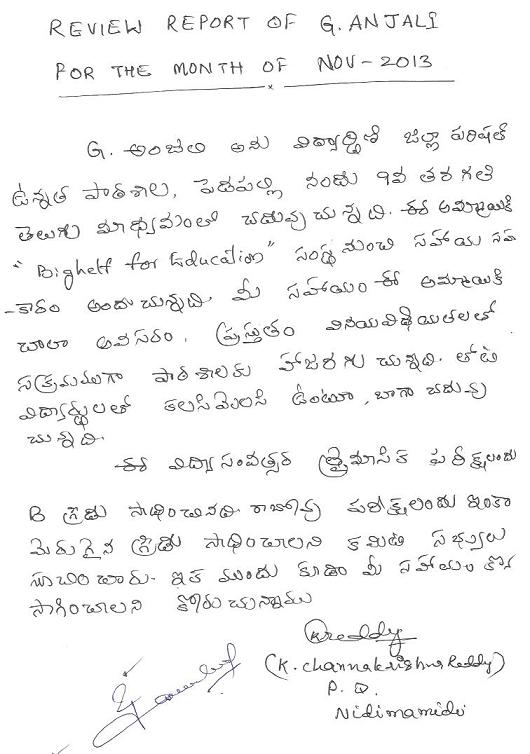 REVIEW REPORT OF G. ANJALI
FOR THE MONTH OF NOV-2013
G. అంజలి అను విద్యార్థిణి జిల్లా పరిషత్
ఉన్నత పాఠశాల, పెదపల్లి నందు 9వ తరగతి
తెలుగు మాధ్యమంలో చదువుచున్నది. ఈ అమ్మాయికి
"Bighelp for Education" సంస్థ నుంచి సహాయ సహ
-కారం అందుచున్నది. మీ సహాయం ఈ అమ్మాయికి
చాలా అవసరం. ప్రస్తుతం వినయవిధేయతలతో
సక్రమముగా పాఠశాలకు హాజరగుచున్నది. తోటి
విద్యార్థులతో కలసిమెలసి ఉంటూ, బాగా చదువు
చున్నది.
ఈ విద్యాసంవత్సర త్రైమాసిక పరీక్షలందు
B గ్రేడు సాధించినది. రాబోవు పరీక్షలందు ఇంకా
మెరుగైన గ్రేడు సాధించాలని కమిటి సభ్యులు
సూచించారు. ఇక ముందు కూడా మీ సహాయం కొన
సాగించాలని కోరుచున్నాము
Kreddy
(K. Channakrishna Reddy)
P. D.
Nidimamidi